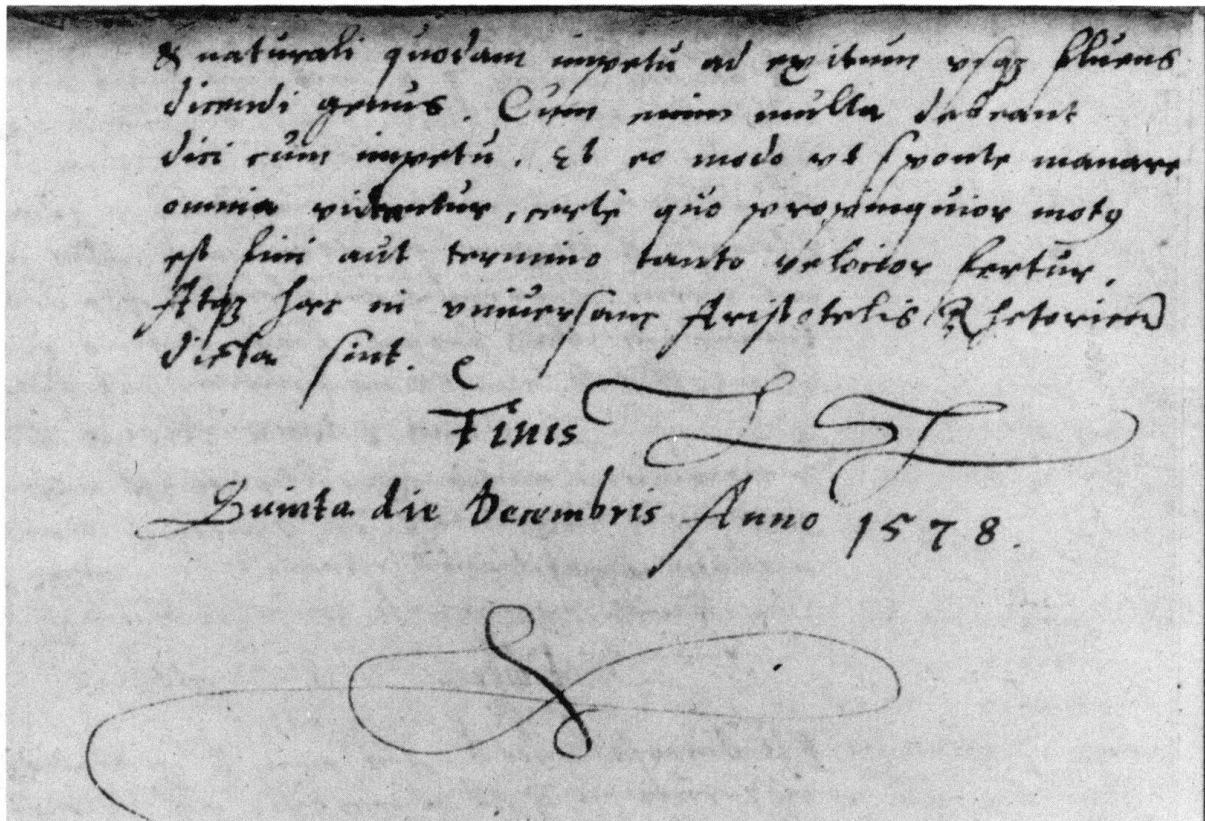 & naturali quodam impetu ad exitum vsqȝ fluens
dicendi genus. Cum enim multa debeant
dici cum impetu. Et eo modo vt sponte manare
omnia videantur, certè quo propinquior motꝯ
est fini aut termino tanto velocior fertur.
Atqȝ haec in vniuersam Aristotelis Rhetoricẽ
dicta sint.
Finis
Quinta die Decembris Anno 1578.